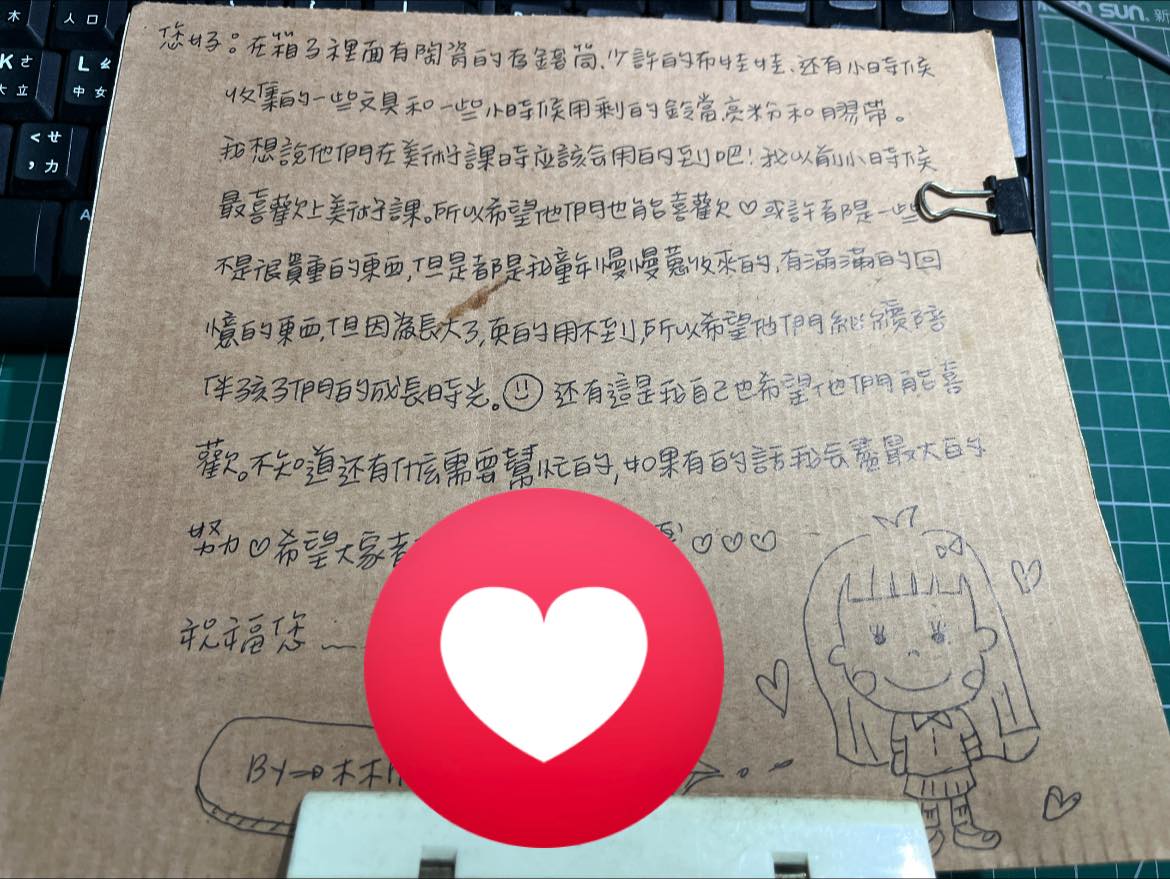 木 人 口
K ㄜ L ㄠ
大 立 中 女
< ㄝ
, 力
A
SUN. 新
您好。在箱子裡面有陶瓷的存錢筒、少許的布娃娃、还有小時候
收集的一些文具和一些小時候用剩的鈴當亮粉和膠帶。
我想說他們在美術課時应該会用的到吧!我以前小時候
最喜歡上美術課。所以希望他們也能喜歡♡或許都是一些
不是很貴重的東西,但是都是我童年慢慢蒐收來的,有滿滿的回
憶的東西,但因為長大了,真的用不到,所以希望他們継續陪
伴孩子們的成長時光。☺ 还有這是我自己也希望他們能喜
歡。不知道还有什么需要幫忙的,如果有的話我会盡最大的
努力♡希望大家 ♡♡♡
祝福您~
By→林